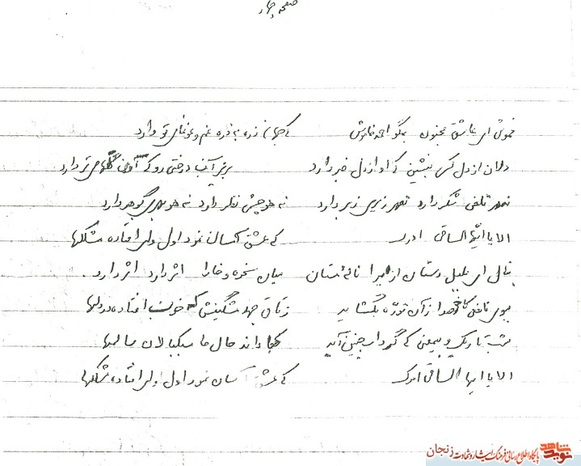 صفحه چهار
خموش ای عاشق مجنون بگو احمد خاموش که جانان ذره به ذره غم و غوغای تو دارد
دلا نزد کسی بنشین که او از دل خبر دارد به زیر آن درختی رو که او گلهای تر دارد
نه هر کلکی شکر دارد نه هر زیری زبر دارد نه هر چشمی نظر دارد نه هر بحری گهر دارد
الا یا ایها الساقی ادر که عشق آسان نمود اول ولی افتاد مشکلها
بنال ای بلبل دستان ازیرا ناله مستان میان صخره و خارا اثر دارد اثر دارد
ببوی نافه کاخر صبا زان طره بگشاید ز تاب جعد مشکینش چه خون افتاد در دلها
شب تاریک و بیم کجا دانند حال ما سبکبالان ساحلها
الا یا ایها الساقی ادرک که عشق آسان نمود اول ولی افتاد مشکلها
نوید شاهد
پایگاه اطلاع رسانی فرهنگ ایثار و شهادت زنجان